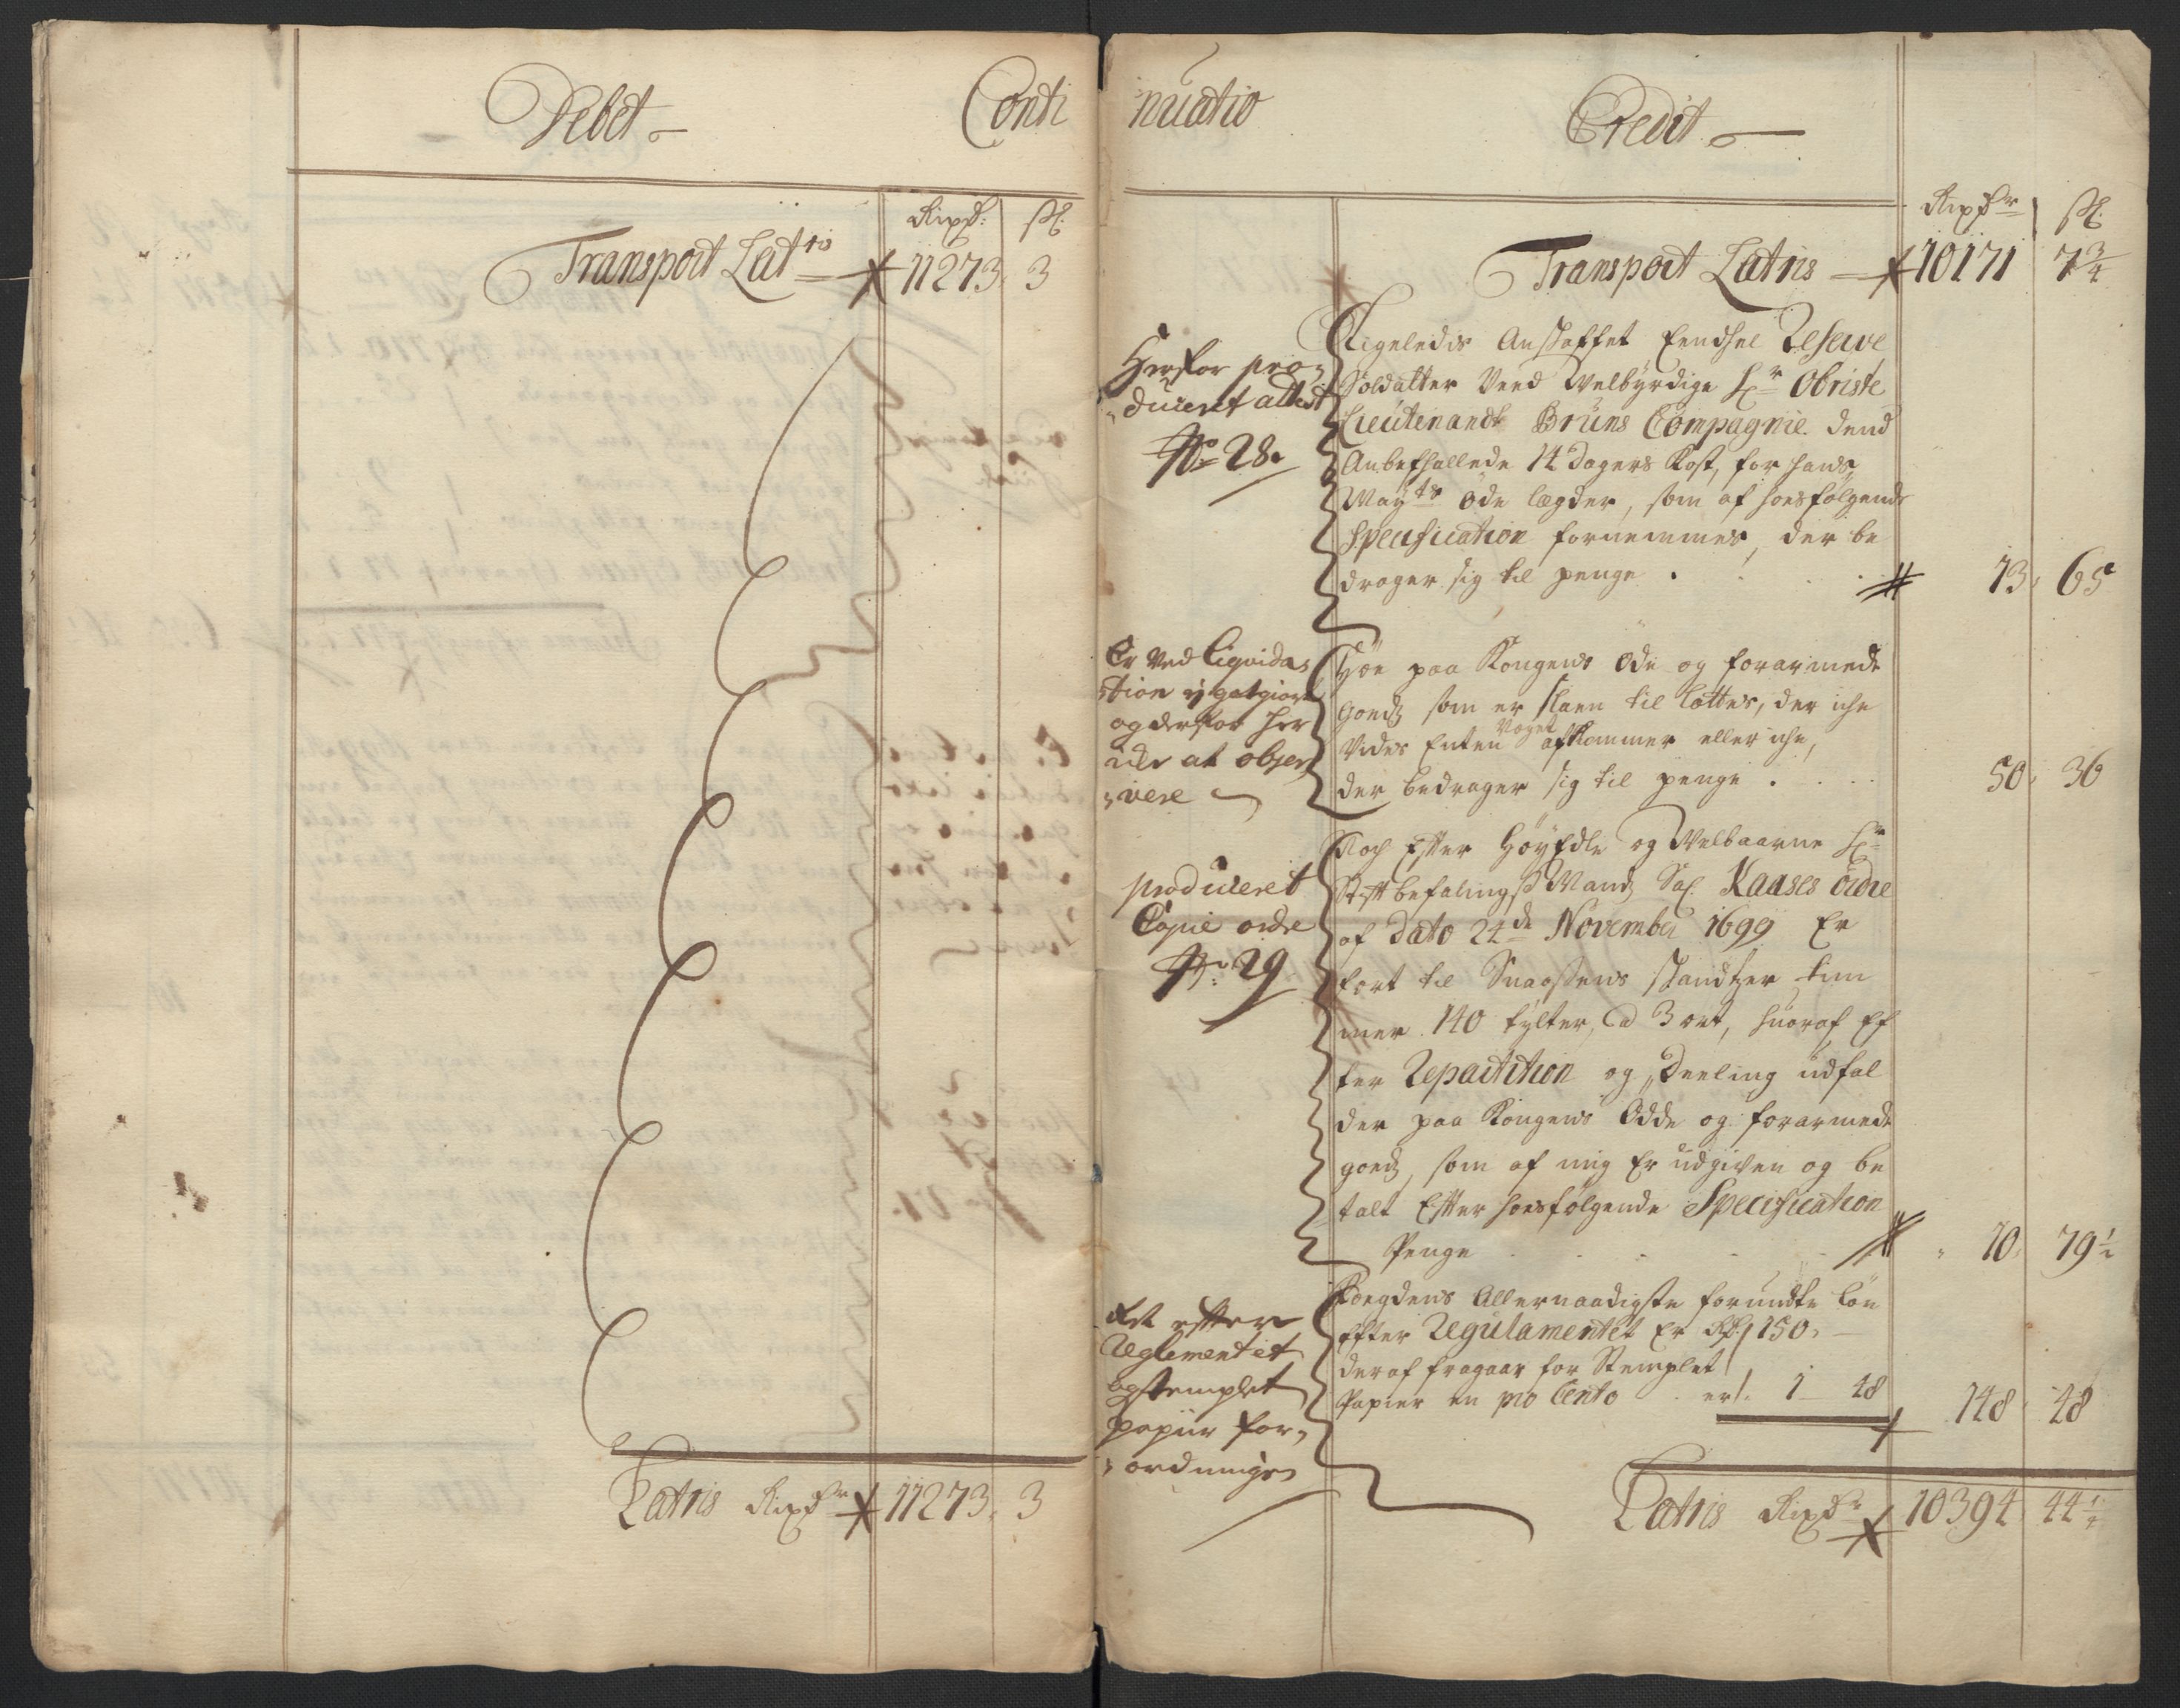 Debet
Conti
Rixdr: sk:
Transport Lat:ris 11273 3
Latris Rixdr 11273. 3
nuatio
Credit
Rixdr sk:
Transport Latris 10171 7 3/4
Herfor pro-
duceret attest
No 28.
Ligeledis Anskaffet Eendhel Reserve
Soldatter Veed Welbyrdige Hr Obriste
Lieutenandt Bruns Compagnie. dend
Anbefhallede 14 dagers Kost, for hans
May:ts øde lægder, som af hoesfølgende
Specification fornemmes, der be
drager sig til penge . . . 13. 65
Er Ved Liquida-
tion ej gotgiort
og derfor her
ved at obser-
vere
Høe paa Kongens Øde og forarmede
Goedz som er slaen til Lottes, der iche
Vides Enten Noget afkommer eller iche,
der bedrager sig til penge . . . 50. 36
produceret
Copie ordre
No: 29
Noch Efter Høyædle og Welbaarne Hr
Stiftbefalingsmand Sal. Kaases ordre
af Dato 24de November 1699 Er
ført til Snaasens Skandtzer tim
mer 140 tylter, a 3 ort, huoraf Ef
ter Repartition og Deeling udfal
der paa Kongens Ødde og forarmede
goedz, som af mig Er udgiven og be
talt Efter hoesfølgende Specification
Penge . . . 10. 79 1/2
Er efter
Reglementet
og stemplet
papiir for-
ordningen
Foegdens Allernaadigste forundte Løn
Efter Regulamentet Er Rdr 150.
deraf fragaar for Stemplet
Papier en pro Cento er 1 48 148 48
Latris Rixdr 10394 44 1/4